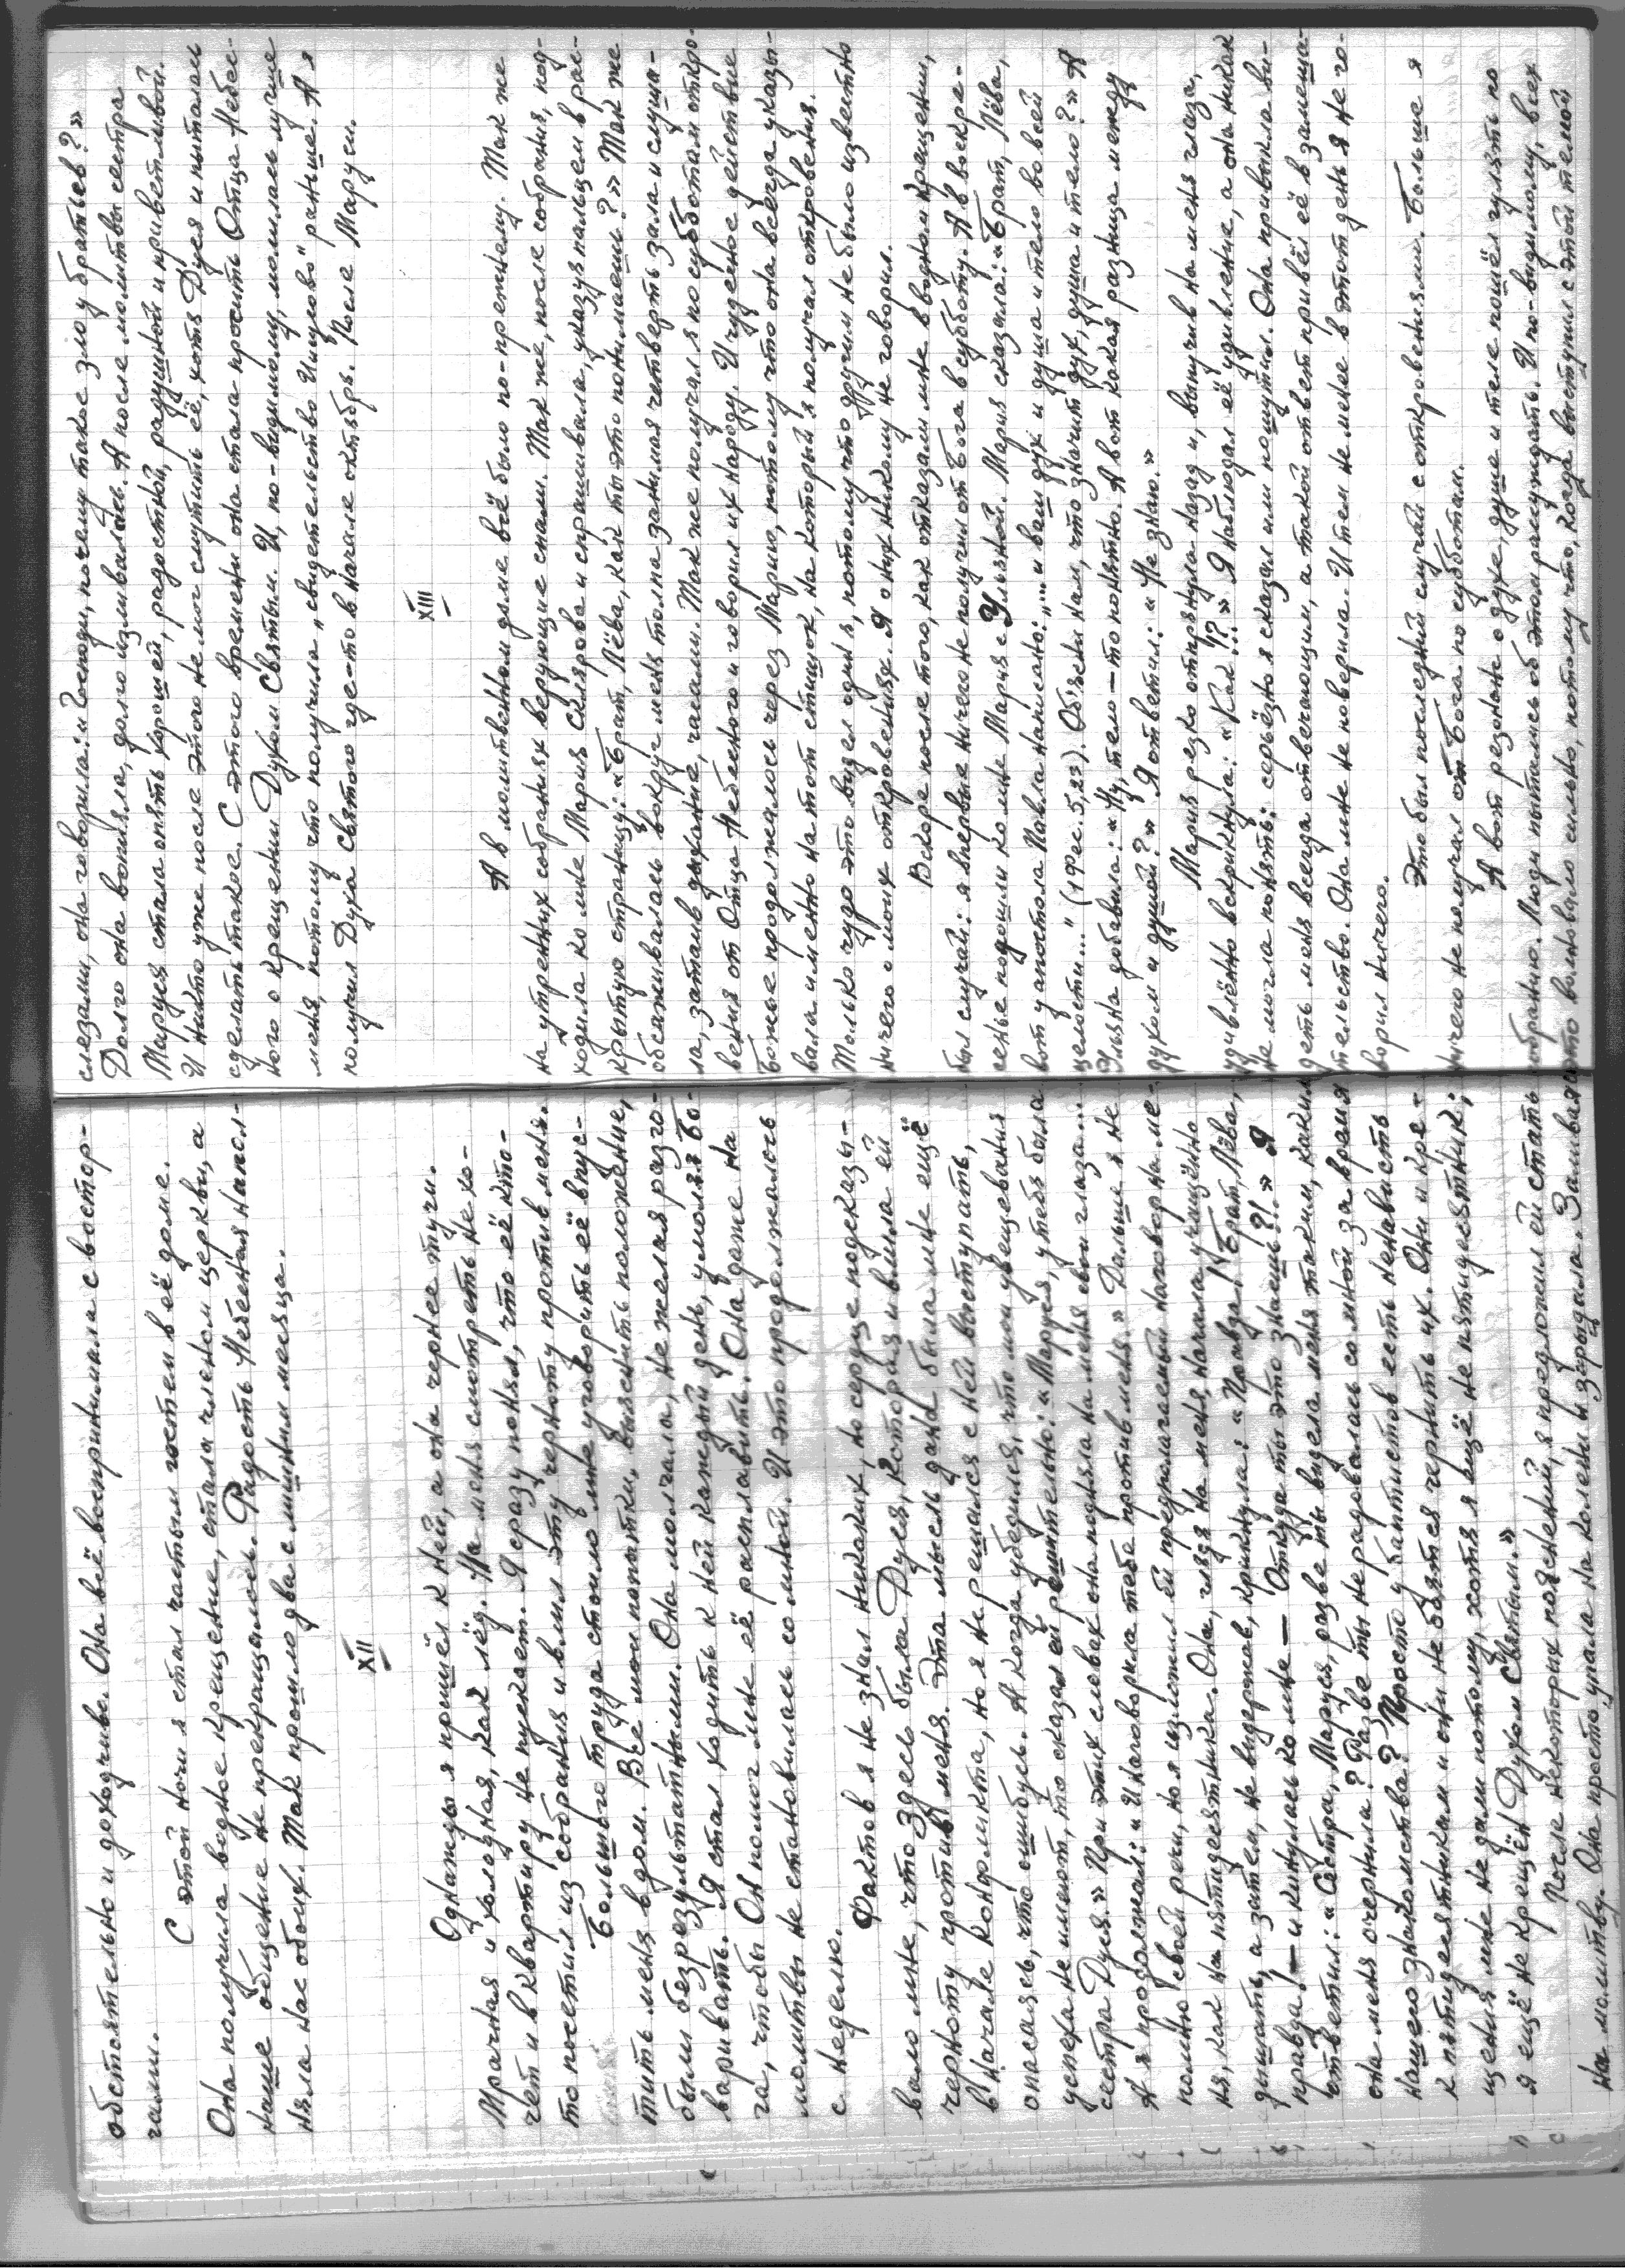 обстоятельно и доходчиво. Она всё воспринимала с востор-
гами.
С этой ночи я стал частым гостем в её доме.
Она получила водное крещение, стала членом церкви, а
наше общение не прекращалось. Радость Небенная напол-
няла нас обоих. Так прошло два с лишним месяца.
XII
Однажды я пришёл к ней, а она чернее тучи.
Мрачная и холодная, как лёд. На меня смотреть не хо-
чет и в квартиру не пускает. Я сразу понял, что её кто-
то посетил из собрания и влил эту черноту против меня.
Большого труда стоило мне уговорить её впус-
тить меня в дом. Все мои попытки, выяснить положение,
были безрезультатными. Она молчала, не желая разго-
варивать. Я стал ходить к ней каждый день, умоляя Бо-
га, чтобы Он помог мне её расплавить. Она даже на
молитвы не становилась со мной. И это продолжалось
с неделю.
Фактов я не знал никаких, но сердце подсказы-
вало мне, что здесь была Дуся, которая и влила ей
черноту против меня. Эта мысль дана была мне ещё
в начале конфликта, но я не решался с ней выступать,
опасаясь, что ошибусь. А когда убедился, что мои увещевания
успеха не имеют, то сказал ей решительно: «Маруся, у тебя была
сестра Дуся.» При этих словах она подняла на меня свои глаза...
А я продолжал: «И наговорила тебе против меня.» Дальше я не
помню своей речи, но я изложил ей предполагаемый наговор на ме-
ня, как на пятидесятника. Она, глядя на меня, начала учащённо
дышать, а затем, не выдержав, крикнула: «Правда! Брат, Лёва,
правда! — и кинулась ко мне — Откуда ты это знаешь?!» Я
ответил: «Сестра, Маруся, разве ты видела меня таким, каким
она меня очернила? Разве ты не радовалась со мной за время
нашего знакомства? Просто у баптистов есть ненависть
к пятидесятникам и они не боятся чернить их. Они и кре-
щения мне не дали потому, хотя я ещё не пятидесятник;
я ещё не крещён Духом Святым.»
После некоторых пояснений, я предложил ей стать
на молитву. Она просто упала на колени и зарыдала. Заливаясь
слезами, она говорила: «Господи, почему такое зло у братьев?»
Долго она вопияла, долго изливалась. А после молитвы сестра
Маруся стала опять хорошей, радостной, радушной и приветливой.
И никто уже после этого не мог смутить её, хотя Дуся и пыталась
сделать такое. С этого времени она стала просить Отца Небес-
ного о крещении Духом Святым. И, по-видимому, молилась лучше
меня, потому что получила „свидетельство Иисусово" раньше. А я
получил Духа Святого где-то в начале октября. После Маруси.
XIII
А в молитвенном доме всё было по-прежнему. Так же
на утренних собраниях верующие спали. Так же, после собрания, под-
ходила ко мне Мария Склярова и спрашивала, указуя пальцем в рас-
крытую страницу: «Брат, Лёва, как ты это понимаешь?» Так же
обсаживалась вокруг меня толпа занимая четверть зала и слуша-
ла, затаив дыхание, часами. Так же получал я по субботам откро-
вения от Отца Небенного и говорил их народу. И чудесное действие
Божье продолжалось через Марию, потому что она всегда указы-
вала именно на тот стишок, на который я получал откровения.
Только чудо это видел один я, потому что другим не было известно
ничего о моих откровениях. Я о них никому не говорил.
Вскоре после того, как отказали мне в водном крещении,
был случай: я впервые ничего не получил от Бога в субботу. А в воскре-
сенье подошли ко мне Мария с Ульяной. Мария сказала: «Брат, Лёва,
вот у апостола Павла написано: „... и ваш дух и душа и тело во всей
целости..." (1 Фес. 5, 23). Объясни нам, что значит дух, душа и тело?» А
Ульяна добавила: «Ну, тело — то понятно. А вот какая разница между
духом и душой?» Я ответил: «Не знаю.»
Мария резко отпрянула назад и, выпучив на меня глаза,
удивлённо вскрикнула: «Как!?..» Я наблюдал её удивление, а она никак
не могла понять: серьёзно я сказал или пошутил. Она привыкла ви-
деть меня всегда отвечающим, а такой ответ привёл её в замеша-
тельство. Она мне не поверила. И тем не менее в этот день я не го-
ворил ничего.
Это был последний случай с откровениями. Больше я
ничего не получал от Бога по субботам.
А вот резонанс о духе, душе и теле пошёл гулять по
собранию. Люди пытались об этом рассуждать. И по-видимому, всех
это волновало сильно, потому что, когда выступил с этой темой